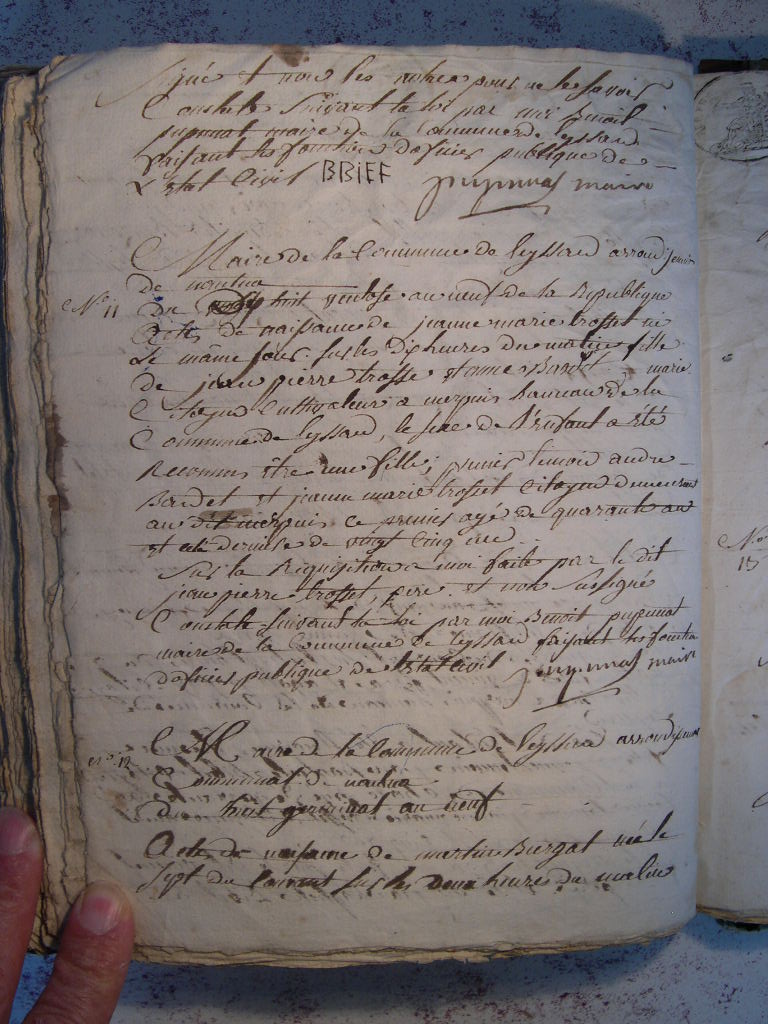 signé et non les autres pour ne le savoir
Constaté Suivant la loi par moi Benoit
pupunat maire de la Commune de Leyssard
faisant les fonction dofficier publique de
L'Etat Civil BBiEF pupunat maire
Maire de la Commune de Leyssard arrondi
de nantua
N° 11
Du huit ventose an neuf de la Republique
Acte de naissance de jeanne marie trosset né
Le même jour sur les Dix heures du matin fille
de jean pierre trosset et anne Bardet, marié
Citoyen Cultivateur a merpuis hameau de la
Commune de Leyssard, le sexe de l'enfant a été
Reconnu être une fille; premier temoin andre
Bardet et jeanne marie trosset Citoyen demeurant
au dit merpuis ce premier agé de quarante an
et cete derniere de vingt Cinq an
Sur la Requisition a moi faite par le dit
jean pierre trosset, pere et non Sussigné
Constaté Suivant la loi par moi Benoit pupunat
maire de la Commune de Leyssard faisant les fonction
dofficier publique de l'Etat Civil pupunat maire
N° 12
Maire de la Commune de Leyssard
Communal de nantua
du huit germinal an neuf
Acte de naissance de martin Burgat née le
Sept du Courant sur les Deux heures du matin
N°
13